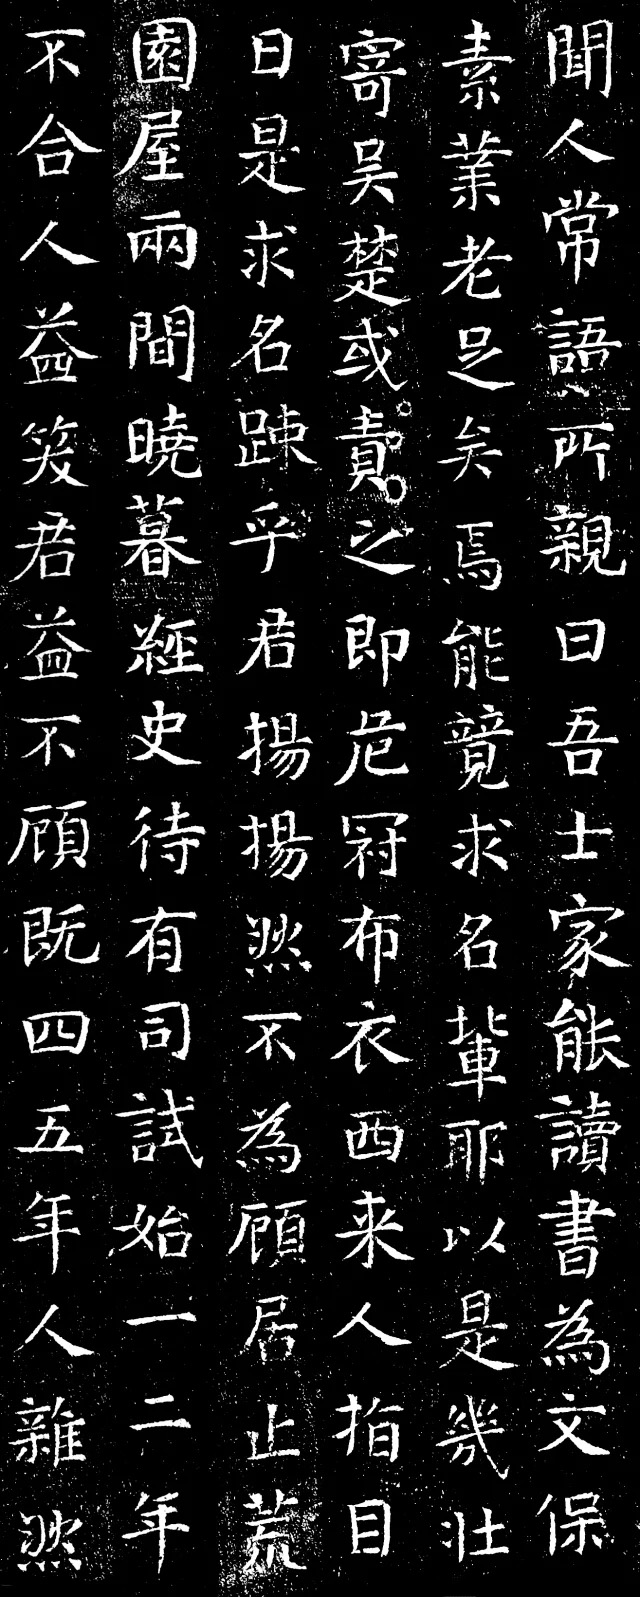 聞人常語所親曰吾士家能讀書為文保
素業老足矣焉能竟求名輩耶以是幾壯
寄吴楚或責之即危冠布衣西来人指目
曰是求名踈乎君揚揚然不為顧居止荒
園屋兩間曉暮經史待有司試始一二年
不合人益笑君益不顧既四五年人雜然